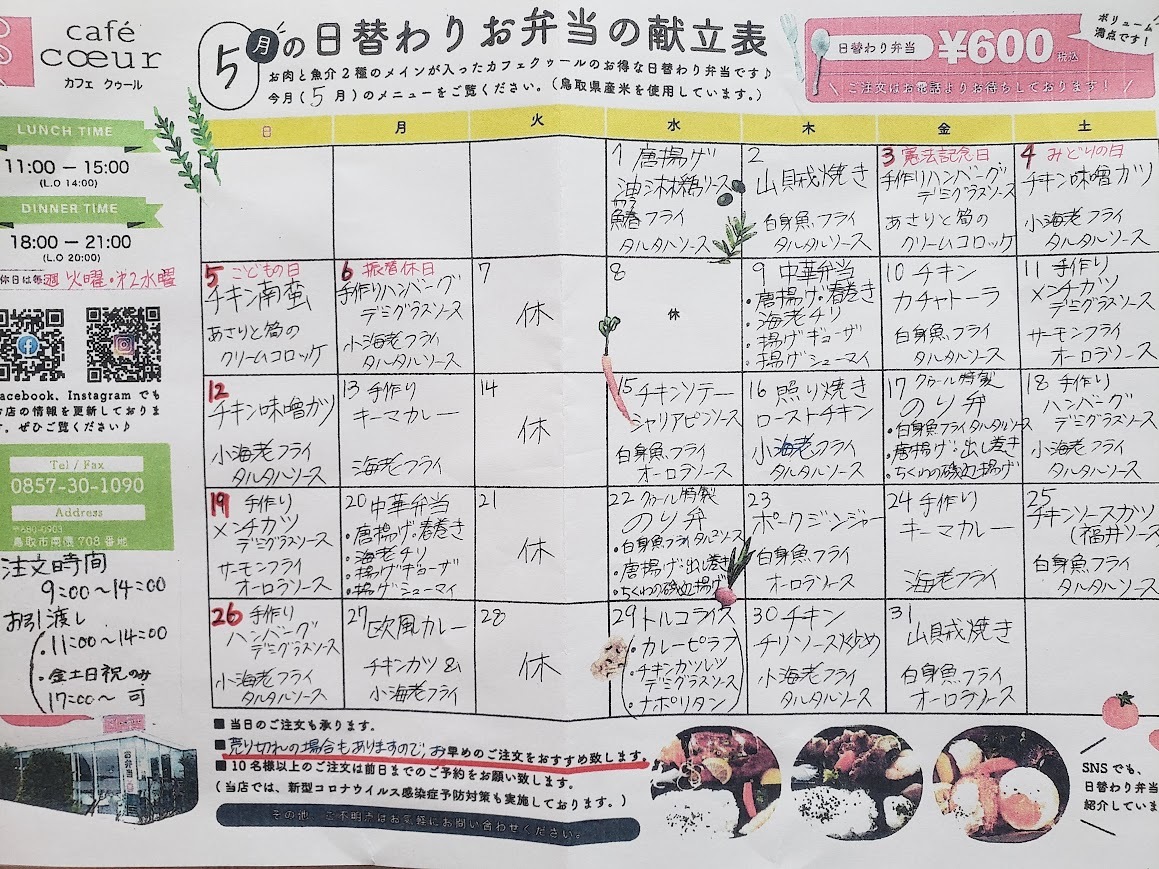 café
cœur
カフェ クゥール
5月の日替わりお弁当の献立表
お肉と魚介2種のメインが入ったカフェクゥールのお得な日替わり弁当です♪
今月(5月)のメニューをご覧ください。(鳥取県産米を使用しています。)
日替わり弁当 ¥600 税込
ボリューム
満点です!
ご注文はお電話よりお待ちしております!
LUNCH TIME
11:00 － 15:00
(L.O 14:00)
DINNER TIME
18:00 － 21:00
(L.O 20:00)
休日は毎週火曜・第2水曜
acebook、Instagram でも
お店の情報を更新しておりま
す。ぜひご覧ください♪
Tel / Fax
0857-30-1090
Address
〒680-0903
鳥取市南隈708番地
注文時間
9:00～14:00
お引渡し
・11:00～14:00
・金土日祝のみ
17:00～ 可
日 月 火 水 木 金 土
1 唐揚げ
油淋鶏ソース
鯵フライ
タルタルソース
2
山賊焼き
白身魚フライ
タルタルソース
3 憲法記念日
手作りハンバーグ
デミグラスソース
あさりと筍の
クリームコロッケ
4 みどりの日
チキン味噌カツ
小海老フライ
タルタルソース
5 こどもの日
チキン南蛮
あさりと筍の
クリームコロッケ
6 振替休日
手作りハンバーグ
デミグラスソース
小海老フライ
タルタルソース
7
休
8
休
9 中華弁当
・唐揚げ・春巻き
・海老チリ
・揚げギョーザ
・揚げシューマイ
10 チキン
カチャトーラ
白身魚フライ
タルタルソース
11 手作り
メンチカツ
デミグラスソース
サーモンフライ
オーロラソース
12
チキン味噌カツ
小海老フライ
タルタルソース
13 手作り
キーマカレー
海老フライ
14
休
15 チキンソテー
シャリアピンソース
白身魚フライ
オーロラソース
16 照り焼き
ローストチキン
小海老フライ
タルタルソース
17 クゥール特製
のり弁
・白身魚フライタルタルソース
・唐揚げ・出し巻き
・ちくわの磯辺揚げ
18 手作り
ハンバーグ
デミグラスソース
小海老フライ
タルタルソース
19 手作り
メンチカツ
デミグラスソース
サーモンフライ
オーロラソース
20 中華弁当
・唐揚げ・春巻き
・海老チリ
・揚げギョーザ
・揚げシューマイ
21
休
22 クゥール特製
のり弁
・白身魚フライタルタルソース
・唐揚げ・出し巻き
・ちくわの磯辺揚げ
23
ポークジンジャー
白身魚フライ
オーロラソース
24 手作り
キーマカレー
海老フライ
25
チキンソースカツ
(福井ソース)
白身魚フライ
タルタルソース
26 手作り
ハンバーグ
デミグラスソース
小海老フライ
タルタルソース
27
欧風カレー
チキンカツ&
小海老フライ
28
休
29 トルコライス
・カレーピラフ
・チキンカツレツ
デミグラスソース
・ナポリタン
30 チキン
チリソース炒め
小海老フライ
タルタルソース
31
山賊焼き
白身魚フライ
オーロラソース
■ 当日のご注文も承ります。
■ 売り切れの場合もありますので、お早めのご注文をおすすめ致します。
■ 10名様以上のご注文は前日までのご予約をお願い致します。
(当店では、新型コロナウイルス感染症予防対策も実施しております。)
その他、ご不明点はお気軽にお問い合わせください。
SNSでも、
日替わり弁当
紹介していま